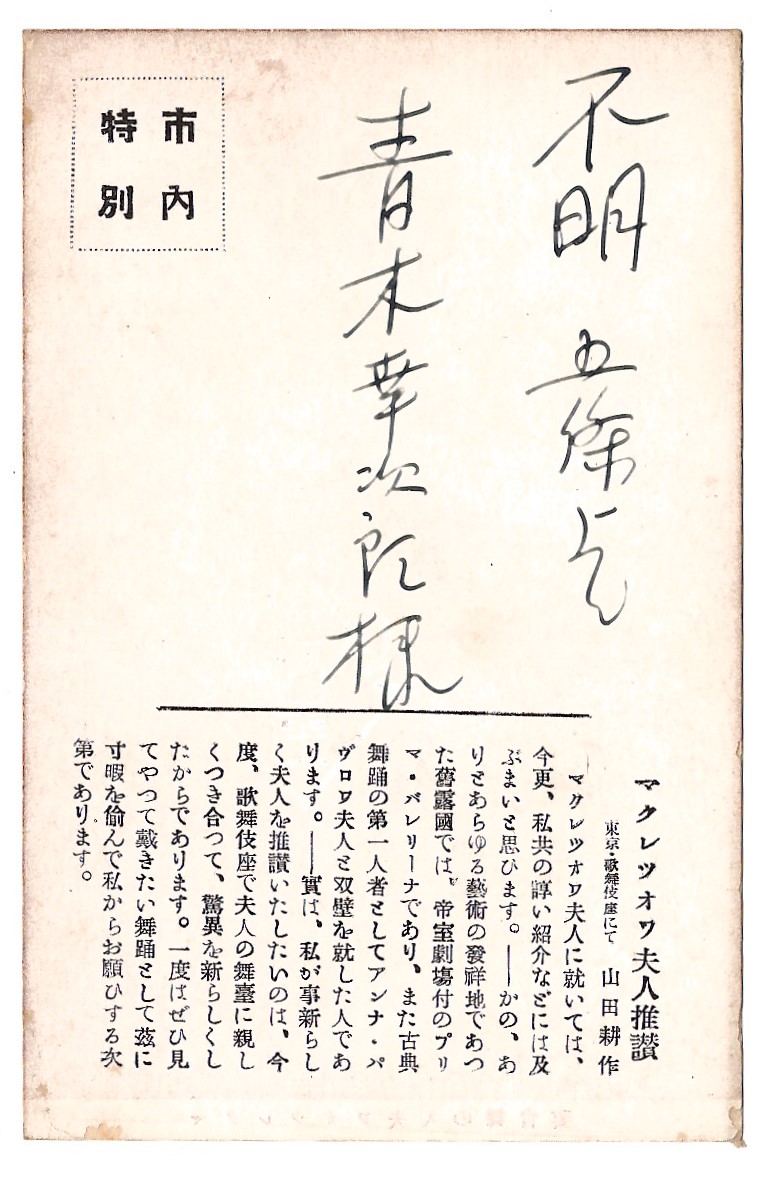 不明 五條
青木幸次郎様
市内
特別
マクレツオワ夫人推讃
東京・歌舞伎座にて 山田耕作
マクレツオワ夫人に就いては、
今更、私共の諄い紹介などには及
ぶまいと思ひます。――かの、あ
りとあらゆる藝術の發祥地であつ
た舊露國では、帝室劇塲付のプリ
マ・バレリーナであり、また古典
舞踊の第一人者としてアンナ・パ
ヴロワ夫人と双壁を就した人であ
ります。――實は、私が事新らし
く夫人を推讃いたしたいのは、今
度、歌舞伎座で夫人の舞臺に親し
くつき合つて、驚異を新らしくし
たからであります。一度はぜひ見
てやつて戴きたい舞踊として茲に
寸暇を偷んで私からお願ひする次
第であります。